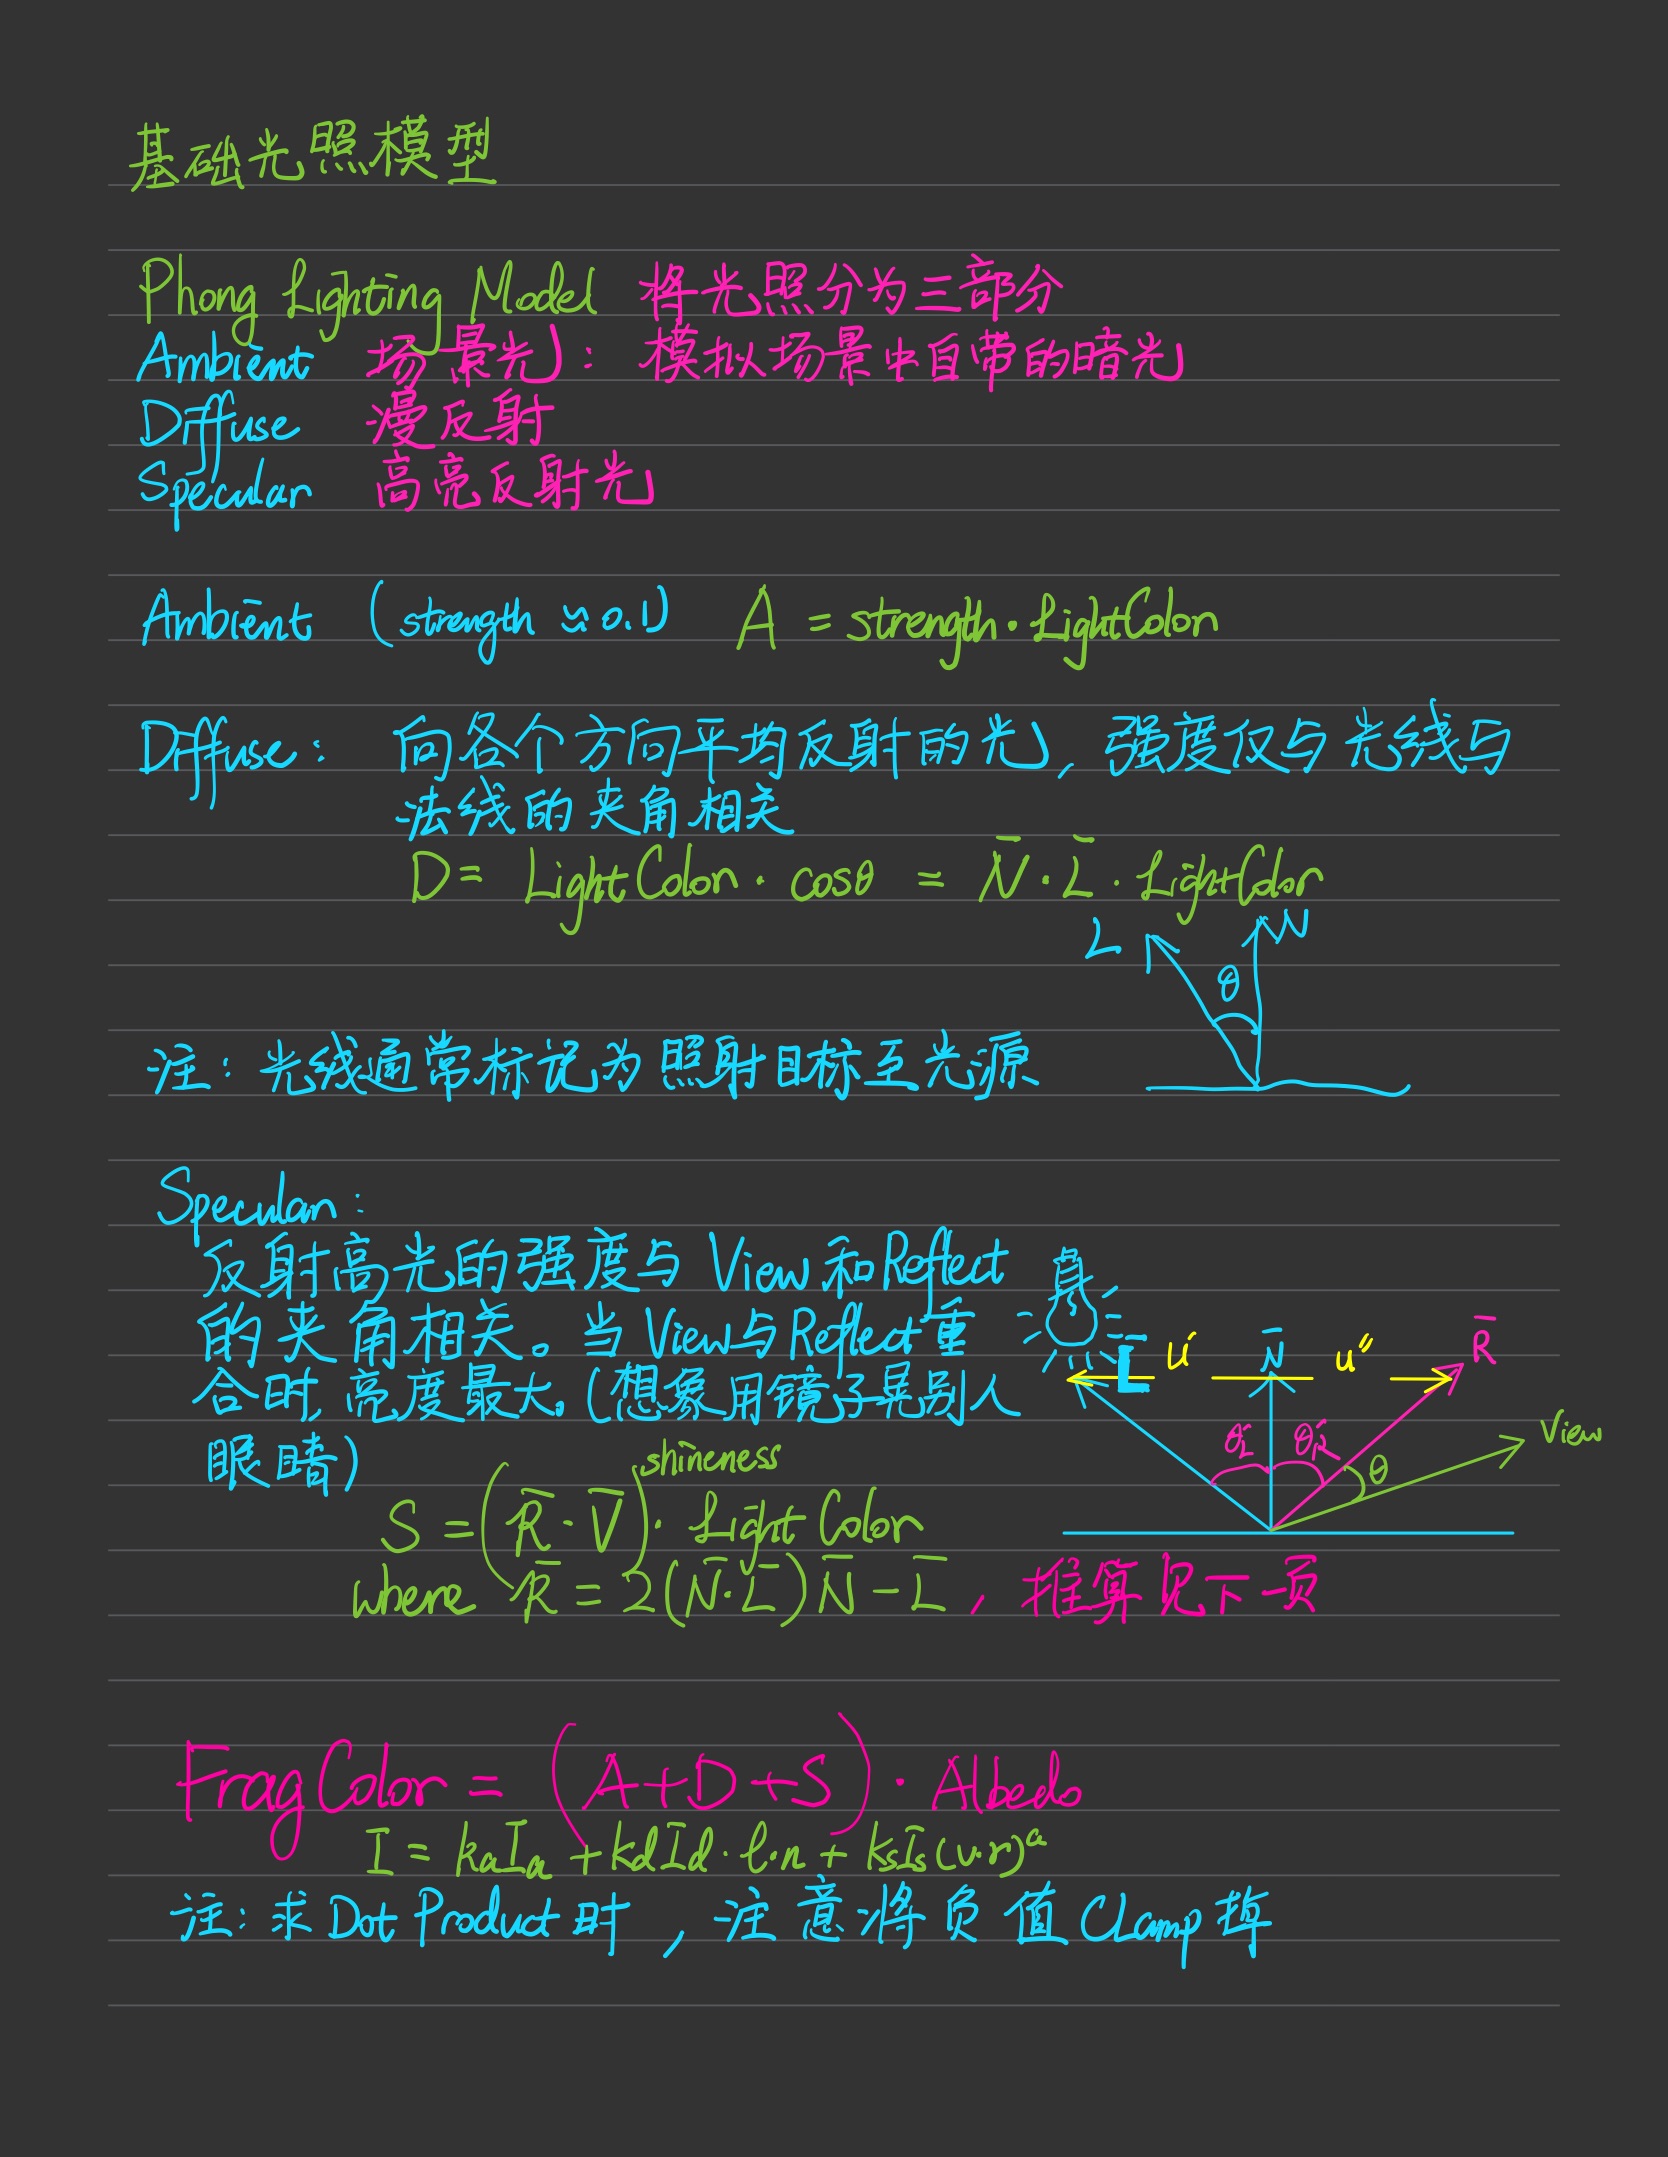 基础光照模型
Phong Lighting Model 将光照分为三部分
Ambient 场景光): 模拟场景中自带的暗光
Diffuse 漫反射
Specular 高亮反射光
Ambient (strength ≈ 0.1) A = strength · LightColor
Diffuse: 向各个方向平均反射的光, 强度仅与光线与
法线的夹角相关
D = LightColor · cosθ = N̄ · L̄ · LightColor
L θ N
注: 光线通常标记为照射目标至光源
Specular:
反射高光的强度与 View 和 Reflect
的夹角相关。当 View与 Reflect 重
合时, 亮度最大。(想象用镜子晃别人
眼睛)
L̄ u' N̄ u'' R̄
θL̄ θR̄ θ View
S = (R̄ · V̄)^shineness · Light Color
where R̄ = 2(N̄·L̄)N̄ − L̄, 推算见下一页
FragColor = (A+D+S) · Albedo
I = kaIa + kdId · l·n + ksIs(v·r)^a
注: 求 Dot Product 时, 注意将负值 Clamp 掉